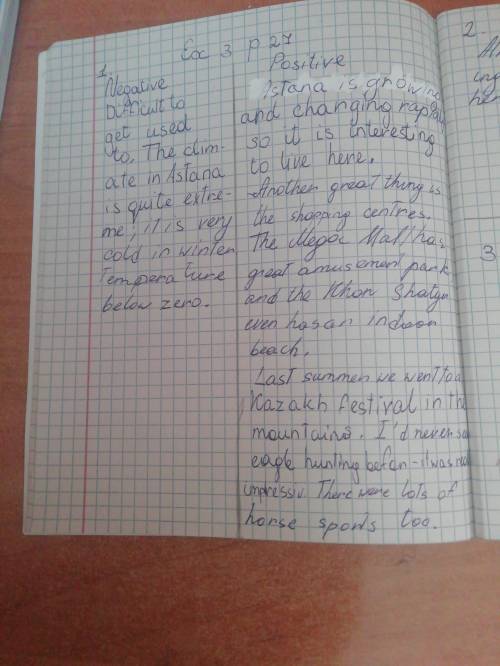 Ex 3 p 27
1.
Negative
Difficult to
get used
to. The clim-
ate in Astana
is quite extre-
me, it is very
cold in winter
temperature
below zero.
Positive
Astana is growing
and changing rapidly
so it is interesting
to live here.
Another great thing is
the shopping centres.
The Mega Mall has
great amusement park
and the Khan Shatyr
even has an indoor
beach.
Last summer we went to a
Kazakh festival in the
mountains. I'd never
eagle hunting before - it was
impressiv. There were lots of
horse sports too.
2.
3